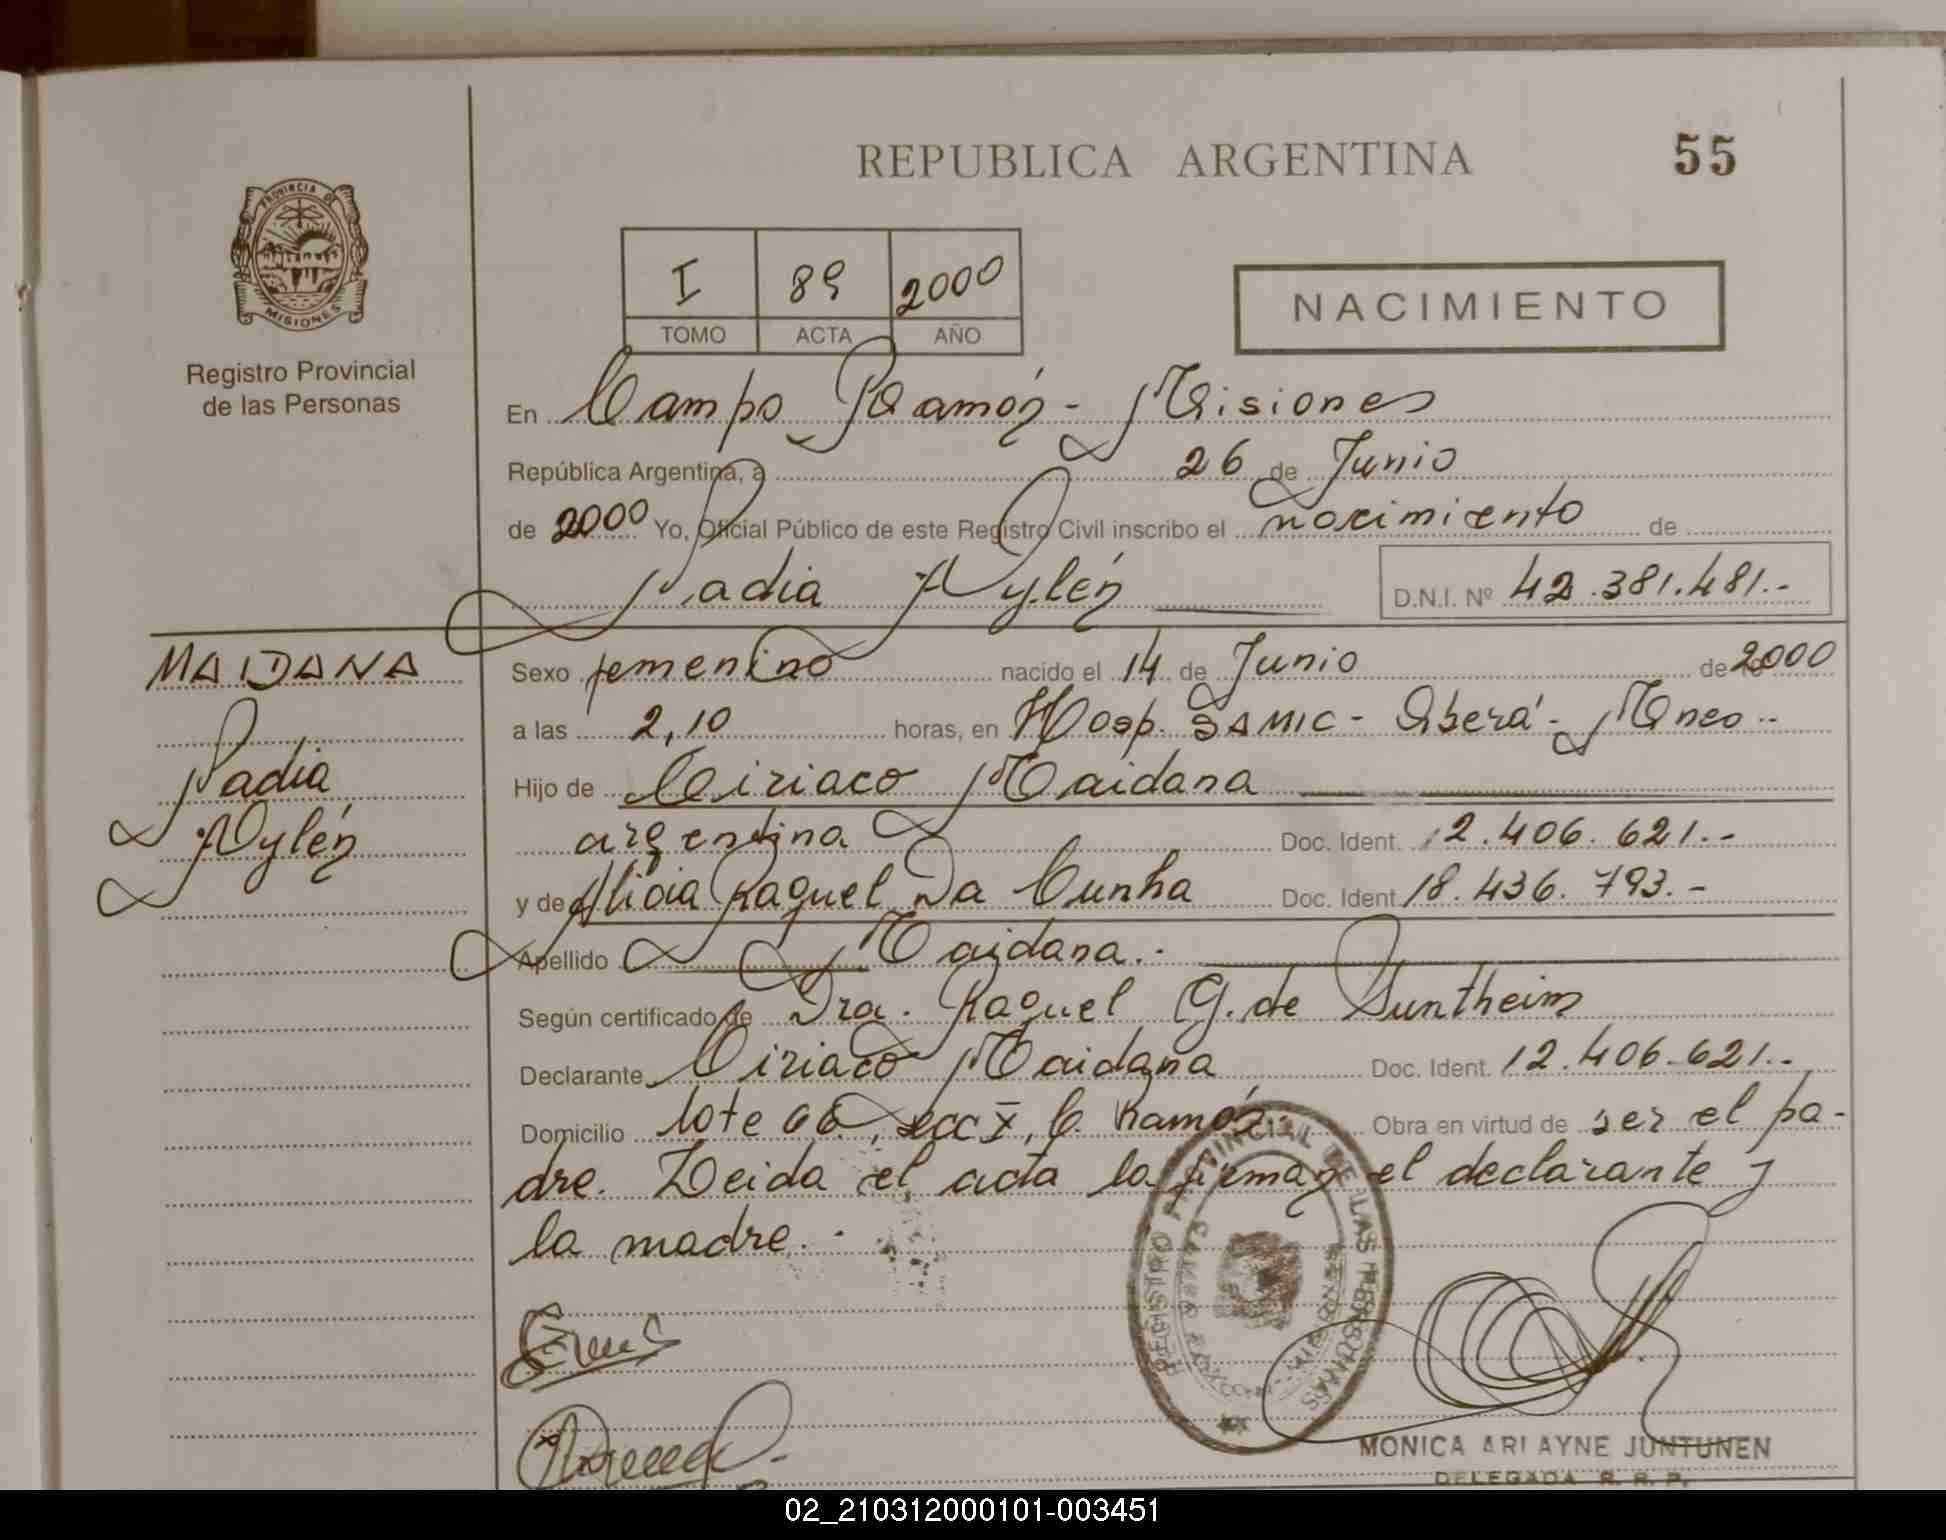 REPUBLICA ARGENTINA
55
PROVINCIA DE
MISIONES
Registro Provincial
de las Personas
I 89 2000
TOMO ACTA AÑO
NACIMIENTO
En Campo Ramón - Misiones
República Argentina, a 26 de Junio
de 2000 Yo, Oficial Público de este Registro Civil inscribo el nacimiento de
Nadia Aylén D.N.I. Nº 42.381.481.-
MAIDANA
Nadia
Aylén
Sexo femenino nacido el 14 de Junio de 2000
a las 2,10 horas, en Hosp. SAMIC - Oberá - Mnes..
Hijo de Ciriaco Maidana
argentina Doc. Ident. 12.406.621.-
y de Alicia Raquel Da Cunha Doc. Ident. 18.436.793.-
Apellido Maidana.-
Según certificado de Dra. Raquel G. de Suntheim
Declarante Ciriaco Maidana Doc. Ident. 12.406.621.-
Domicilio lote 66, secc X, C. Ramón Obra en virtud de ser el pa-
dre. Leida el acta la firman el declarante y
la madre.-
REGISTRO PROVINCIAL DE LAS PERSONAS
MISIONES
MONICA ARLAYNE JUNTUNEN
DELEGADA R. R. P.
02_210312000101-003451